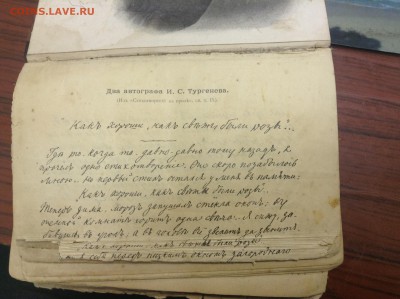 COINS.LAVE.RU
Два автографа И. С. Тургенева.
Какъ хороши, какъ свѣжи были розы...
Гдѣ то, когда то, давно-давно тому назадъ, я
прочелъ одно стихотвореніе. Оно скоро позабылось
мною.. но первый стихъ остался у меня въ памяти:
Какъ хороши, какъ свѣжи были розы.
Теперь зима; морозъ запушилъ стекла оконъ; въ
темной комнатѣ горитъ одна свѣча. Я сижу, за-
бившись въ уголъ; а въ головѣ всё звенитъ да звенитъ
Какъ хороши, какъ свѣжи были розы
себя передъ низкимъ окномъ загороднаго